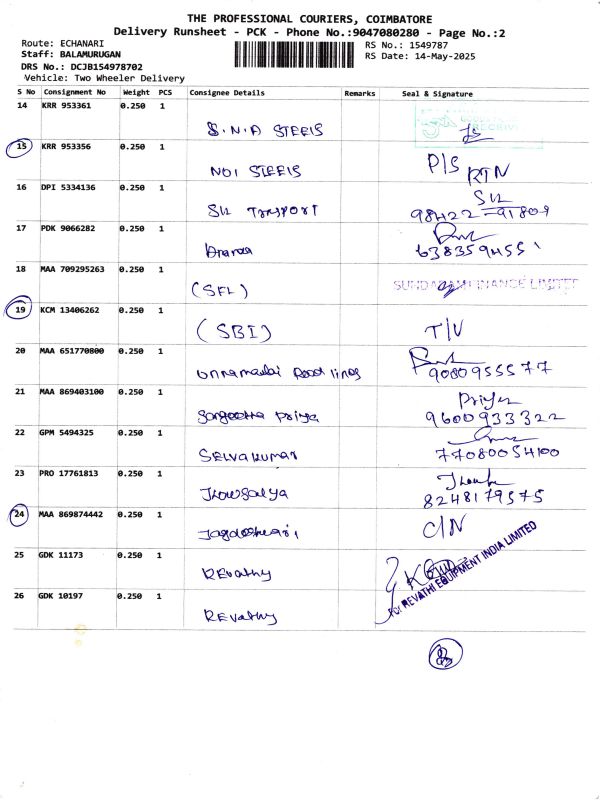 THE PROFESSIONAL COURIERS, COIMBATORE
Delivery Runsheet - PCK - Phone No.:9047080280 - Page No.:2
Route: ECHANARI
RS No.: 1549787
Staff: BALAMURUGAN
RS Date: 14-May-2025
DRS No.: DCJB154978702
Vehicle: Two Wheeler Delivery
S No Consignment No Weight PCS Consignee Details Remarks Seal & Signature
14 KRR 953361 0.250 1
S.N.A STEELS
15 KRR 953356 0.250 1
NOI STEELS P/S RTN
16 DPI 5334136 0.250 1
TRANSPORT 98422-91809
17 PDK 9066282 0.250 1
6383594551
18 MAA 709295263 0.250 1
(SFL) SUNDARAM FINANCE LIMITED
19 KCM 13406262 0.250 1
(SBI) T/V
20 MAA 651770800 0.250 1
9080955577
21 MAA 869403100 0.250 1
Sangeetha Priya Priya
9600933322
22 GPM 5494325 0.250 1
SELVAKUMAR 77080054100
23 PRO 17761813 0.250 1
8248179575
24 MAA 869874442 0.250 1
C/N
25 GDK 11173 0.250 1
REvathy
For REVATHI EQUIPMENT INDIA LIMITED
26 GDK 10197 0.250 1
REvathy